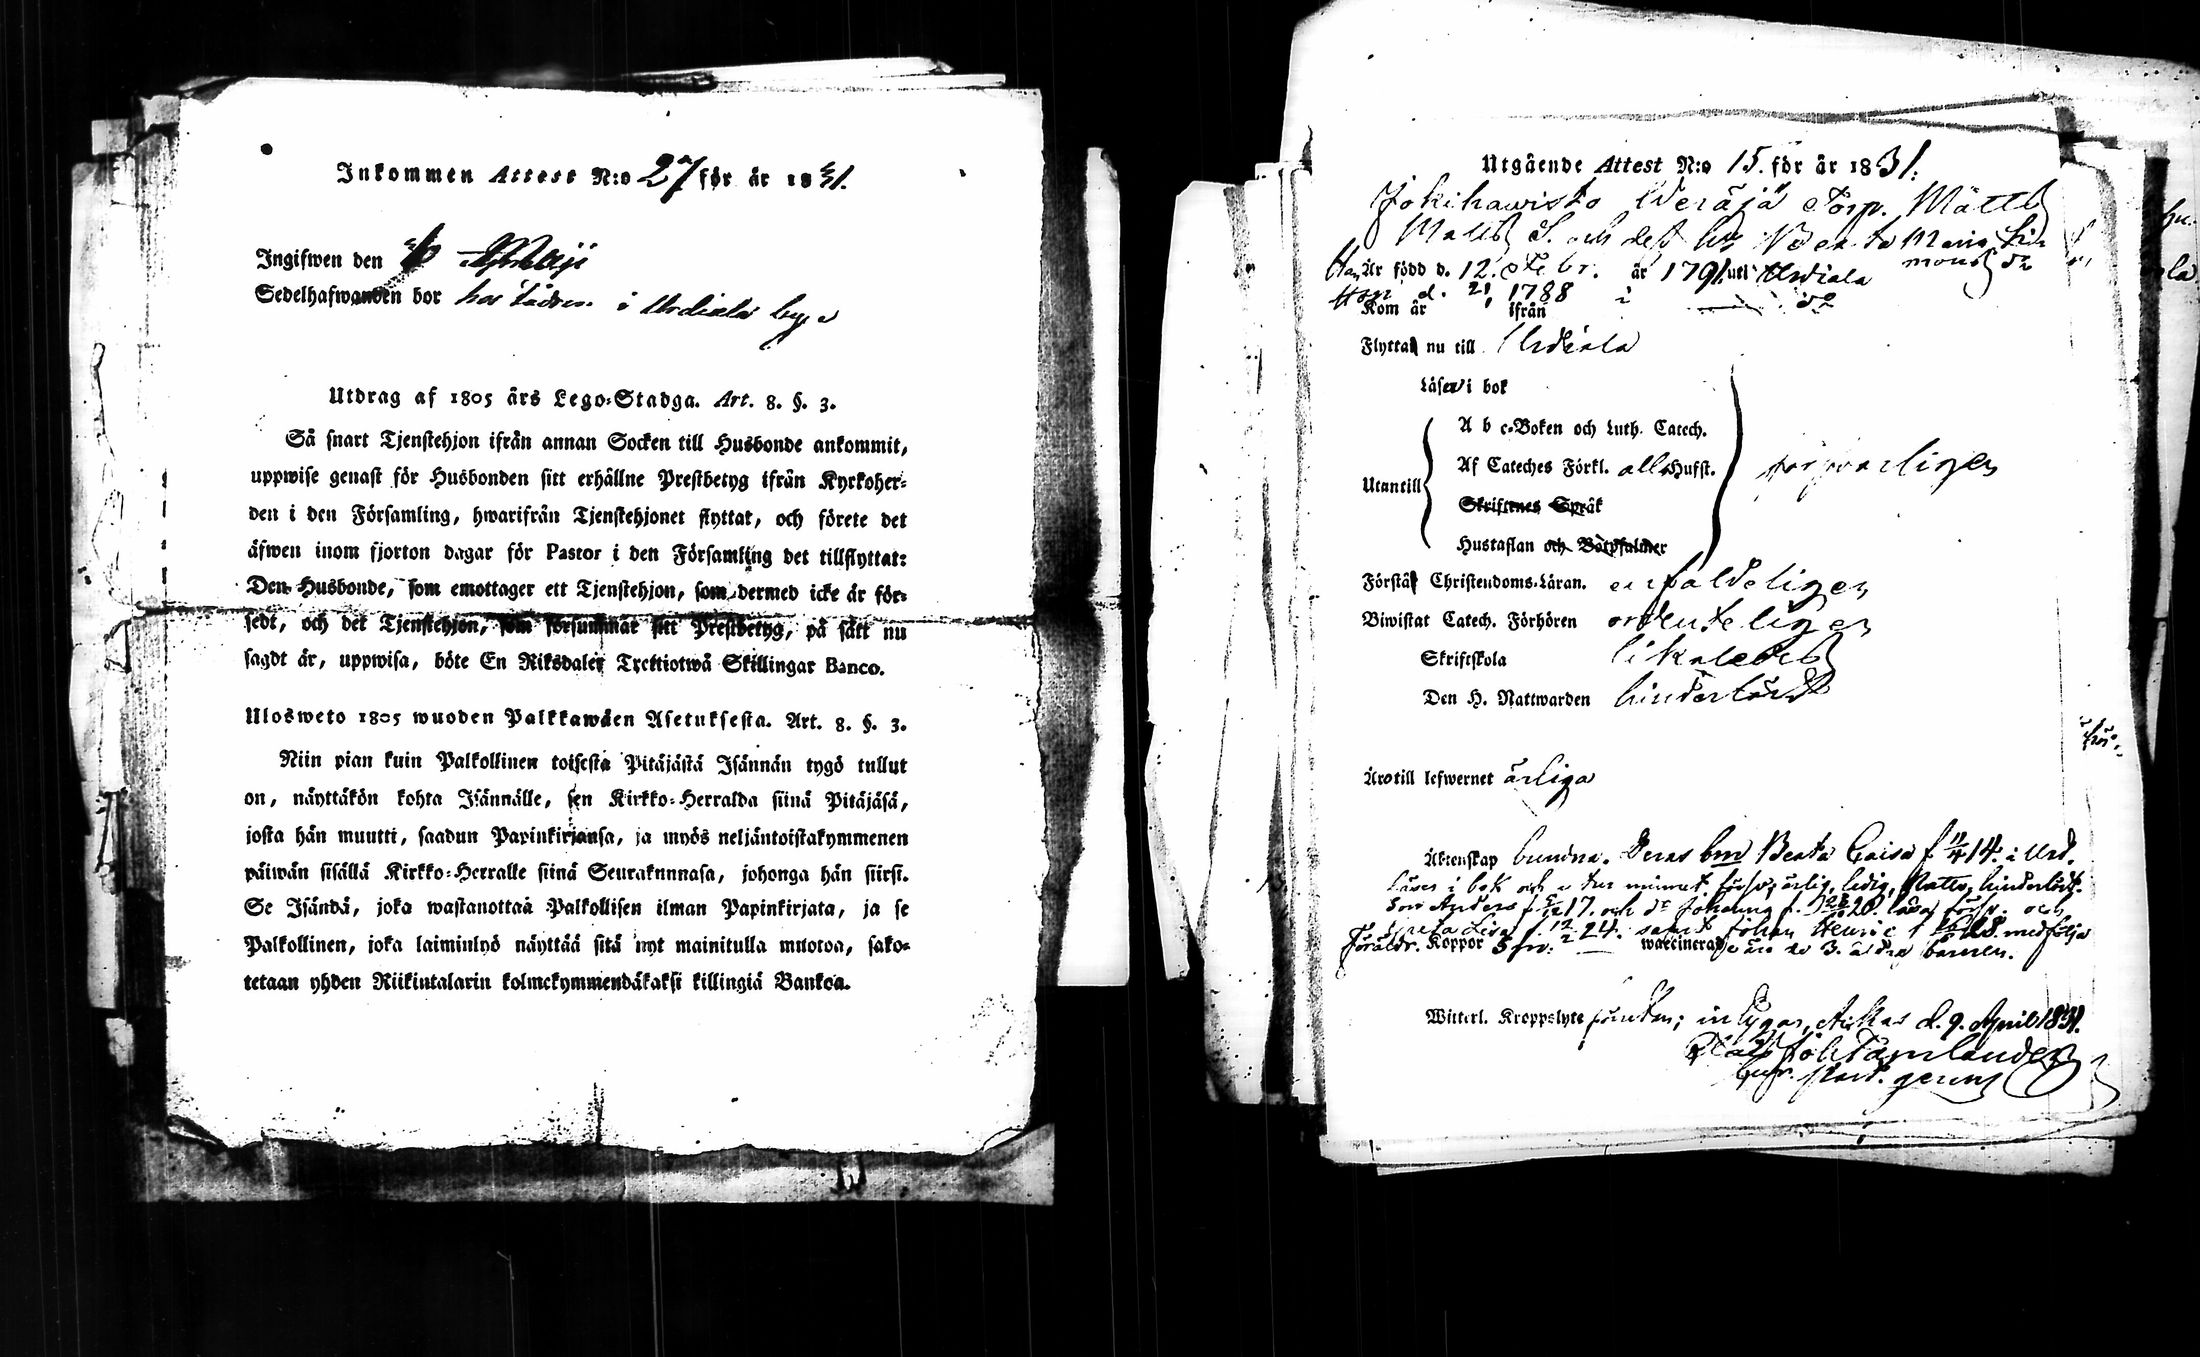 Inkommen Attest N:o 27 för år 1831.
Ingifwen den
Sedelhafwanden bor hos i Urdiala by
Utdrag af 1805 års Lego-Stadga. Art. 8. §. 3.
Så snart Tjenstehjon ifrån annan Socken till Husbonde ankommit,
uppwise genast för Husbonden sitt erhållne Prestbetyg ifrån Kyrkoher-
den i den Församling, hwarifrån Tjenstehjonet flyttat, och förete det
äfwen inom fjorton dagar för Pastor i den Församling det tillflyttat:
Den Husbonde, som emottager ett Tjenstehjon, som dermed icke är för-
sedt, och det Tjenstehjon, som försummar sitt Prestbetyg, på sätt nu
sagdt är, uppwisa, böte En Riksdaler Trettiotwå Skillingar Banco.
Ulosweto 1805 wuoden Palkkawäen Asetuksesta. Art. 8. §. 3.
Niin pian kuin Palkollinen toisesta Pitäjästä Isännän tygö tullut
on, näyttäkön kohta Isännälle, sen Kirkko-Herralda siinä Pitäjäsä,
josta hän muutti, saadun Papinkirjansa, ja myös neljäntoistakymmenen
päiwän sisällä Kirkko-Herralle siinä Seurakunnasa, johonga hän siirsi.
Se Isändä, joka wastanottaa Palkollisen ilman Papinkirjata, ja se
Palkollinen, joka laiminlyö näyttää sitä nyt mainitulla muotoa, sako-
tetaan yhden Riikintalarin kolmekymmendäkaksi killingiä Bankoa.
Utgående Attest N:o 15. för år 1831.
Jokihawisto Weräjä Torp. Matts
Matts S. och dess h. Maria Si-
monsd.
Han Är född d. 12. Febr. år 1791. uti Urdiala
Hon d. 21 1788 i d:o
Kom år ifrån
Flyttat nu till Urdiala
Läser i bok
A b c-Boken och Luth. Catech.
Af Cateches Förkl. alla Hufst. försvarligen
Utantill
Skriftenes Språk
Hustaflan och Botpsalmer
Förstår Christendoms-Läran. enfaldeligen
Biwistat Catech. Förhören ordenteligen
Skriftskola likaledes
Den H. Nattwarden hinderlöst
Äro till lefwernet ärliga
Äktenskap bundna. Deras barn Beata Caisa f. 11/4 14. i Urd.
läser i bok och utur minnet försv; ärlig, ledig, Nattv. hinderlöst.
Son Anders f. 17. och d:r Johanna f. 20. läsa försv. och
Lisa f. 12/2 24. samt Johan Henric f. medfölja
Föräldr. Koppor waccinerade äro de 3. äldre barnen.
Witterl. Kroppslyte; intygar, Ackas d. 9. April 1831.
Joh Tamlander
past. gerens